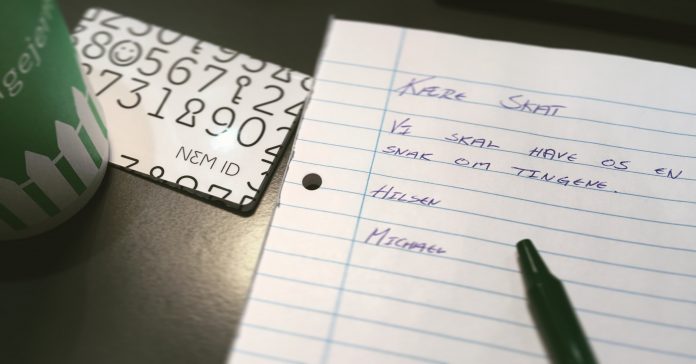 agejern
8 0567 22
731890
NEM ID
KÆRE SKAT
VI SKAL HAVE OS EN
SNAK OM TINGENE.
HILSEN
MICHAEL